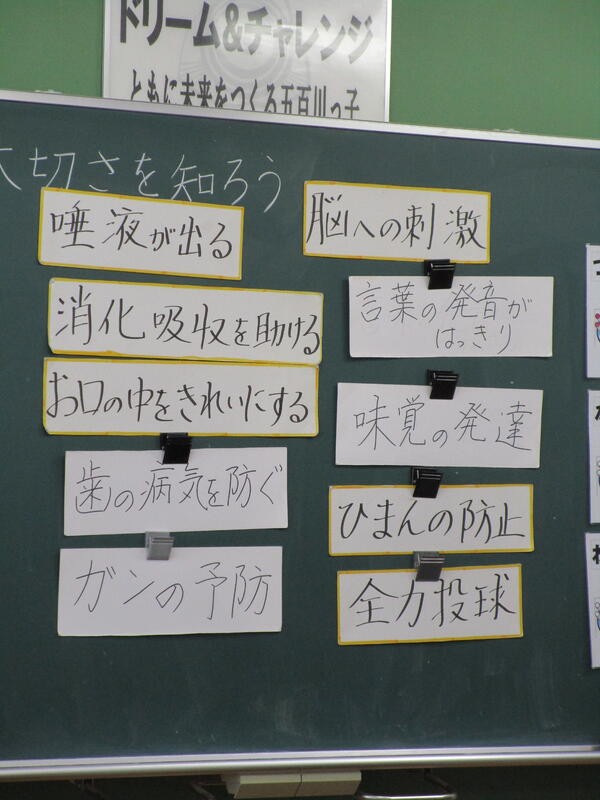 ドリーム&チャレンジ
ともに未来をつくる五百川っ子
切さを知ろう
唾液が出る
消化吸収を助ける
お口の中をきれいにする
歯の病気を防ぐ
ガンの予防
脳への刺激
言葉の発音が
はっきり
味覚の発達
ひまんの防止
全力投球